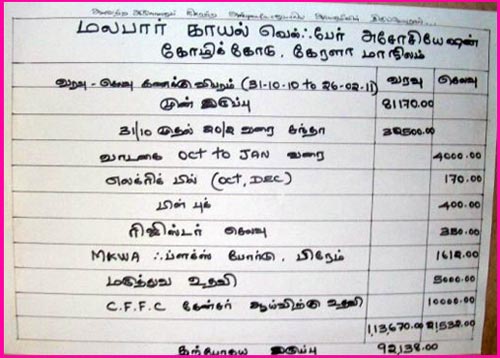 மலபார் காயல் வெல்ஃபேர் அசோசியேஷன்
கோழிக்கோடு, கேரளா மாநிலம்
வரவு - செலவு கணக்கு விபரம் (31-10-10 to 26-02-11) வரவு செலவு
முன் இருப்பு 81170.00
31/10 முதல் 20/2 வரை சந்தா 32500.00
வாடகை OCT to JAN வரை 4000.00
எலக்ரிக் பில் (OCT, DEC) 170.00
பில் புக் 400.00
ரிஜிஸ்டர் செலவு 350.00
MKWA ஃப்ளக்ஸ் போர்டு, பிரேம் 1612.00
மருத்துவ உதவி 5000.00
C.F.F.C கேன்சர் ஆய்விற்கு உதவி 10000.00
1,13,670.00 21,532.00
தற்போதய இருப்பு 92,138.00